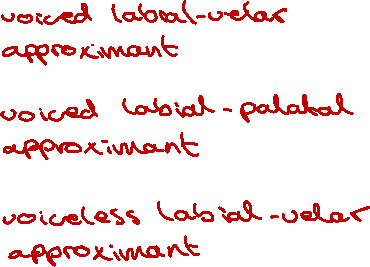 voiced labial-velar
approximant
voiced labial-palatal
approximant
voiceless labial-velar
approximant